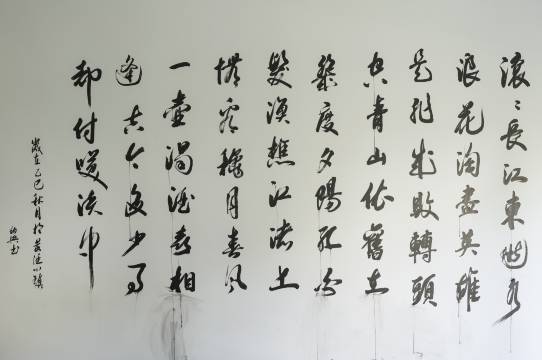 滾〻長江東逝水
浪花淘盡英雄
是非成敗轉頭
空青山依舊在
幾度夕陽紅白
髮漁樵江渚上
慣看穐月春風
一壺濁酒喜相
逢古今多少事
都付咲談中
歲在乙巳秋月於小鎮
書